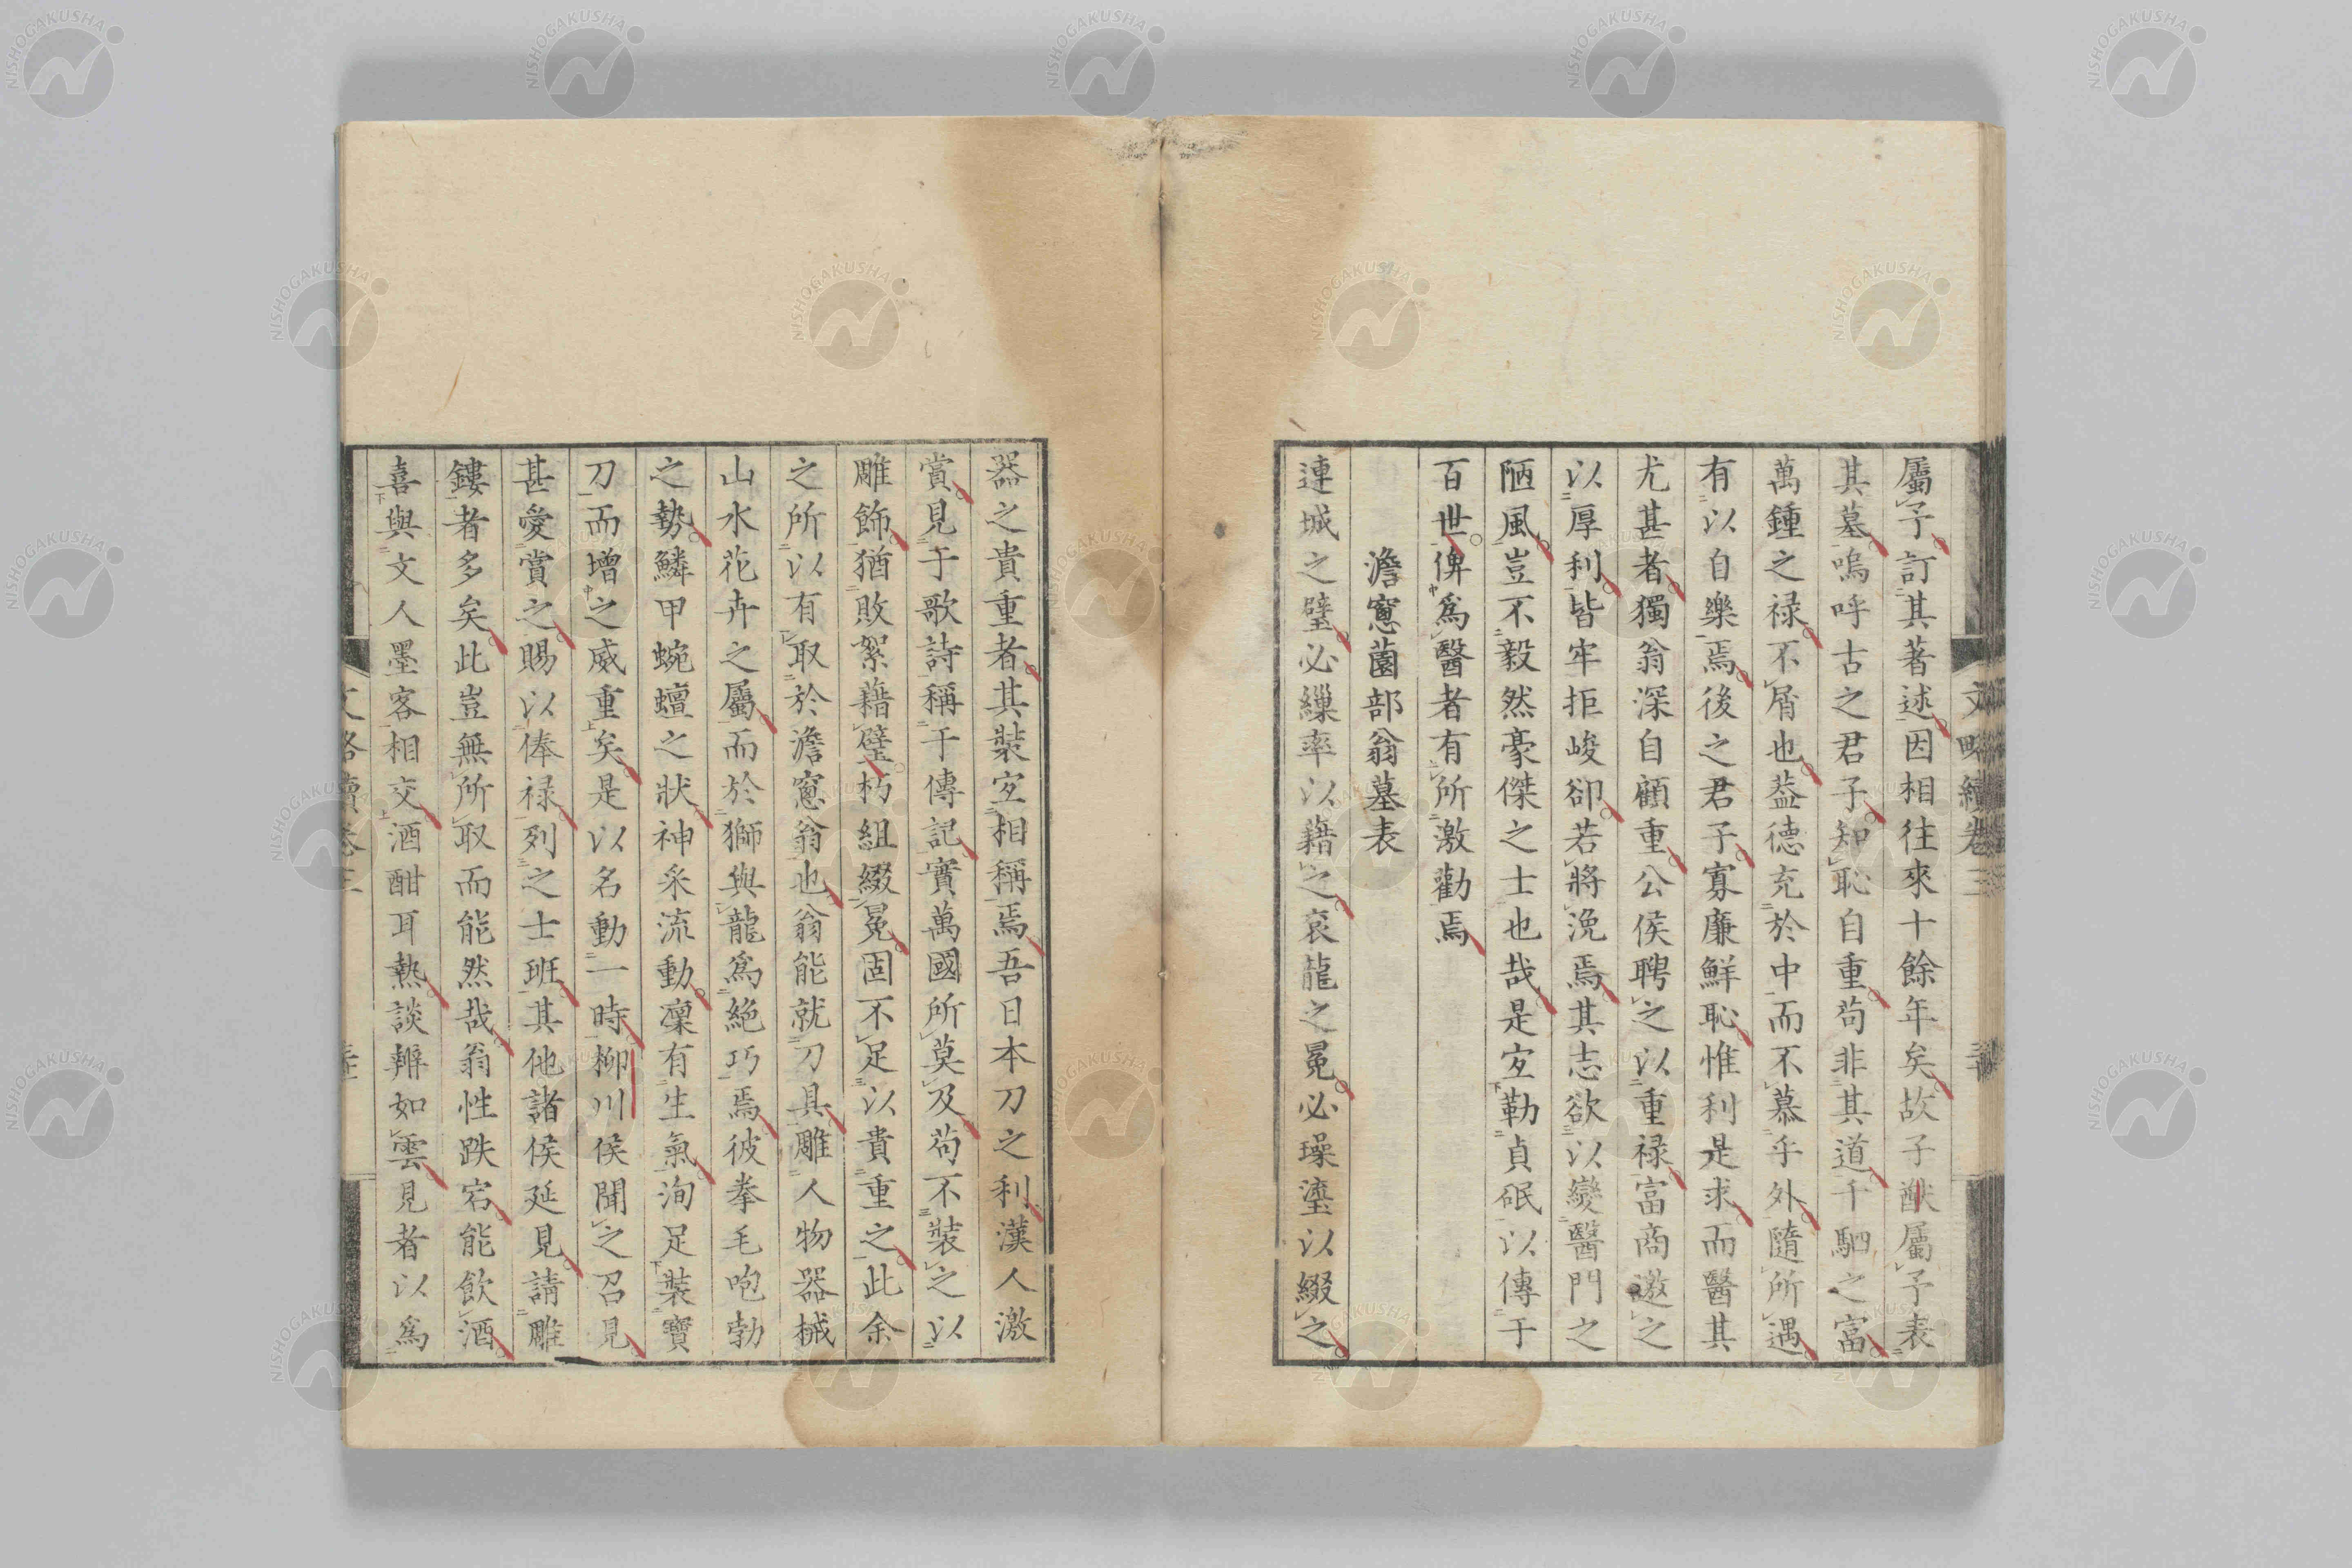 屬予訂其著述因相往來十餘年矣故子猷屬予表
其墓嗚呼古之君子知恥自重苟非其道千駟之富
萬鍾之祿不屑也葢德充於中而不慕乎外隨所遇
有以自樂焉後之君子寡廉鮮恥惟利是求而醫其
尤甚者獨翁深自顧重公侯聘之以重祿富商邀之
以厚利皆牢拒峻卻若將浼焉其志欲以變醫門之
陋風豈不毅然豪傑之士也哉是宜勒貞砥以傳于
百世俾爲醫者有所激勸焉
澹窻薗部翁墓表
連城之璧必繅率以藉之衮龍之冕必璪瑬以綴之
器之貴重者其裝宜相稱焉吾日本刀之利漢人激
賞見于歌詩稱于傳記實萬國所莫及苟不裝之以
雕飾猶敗絮藉璧朽組綴冕固不足以貴重之此余
之所以有取於澹窻翁也翁能就刀具雕人物器械
山水花卉之屬而於獅與龍爲絕巧焉彼拳毛咆勃
之勢鱗甲蜿蟺之狀神采流動凜有生氣洵足裝寶
刀而增之威重矣是以名動一時柳川侯聞之召見
甚愛賞之賜以俸祿列之士班其他諸侯延見請雕
鏤者多矣此豈無所取而能然哉翁性跌宕能飲酒
喜與文人墨客相交酒酣耳熱談辨如雲見者以爲
文略續卷三
NISHOGAKUSHA